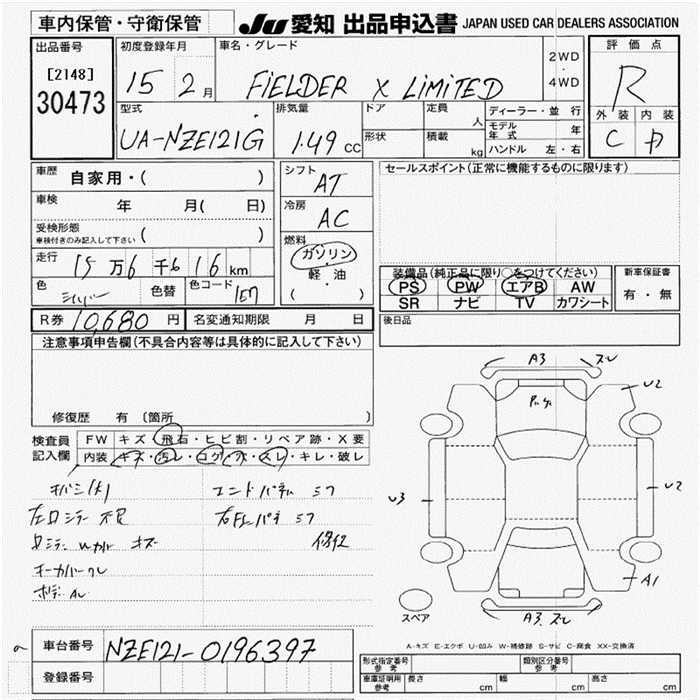 車内保管・守衛保管
JU 愛知 出品申込書 JAPAN USED CAR DEALERS ASSOCIATION
出品番号
[2148]
30473
初度登録年月
15 2月
車名・グレード
FIELDER X LIMITED
2WD
・
4WD
評価点
R
外装 内装
C D
型式
UA-NZE121G
排気量
1.49 CC
ドア
形状
定員
人
積載
kg
ディーラー・並行
モデル年式 年
ハンドル 左・右
車歴 自家用・( )
車検 年 月( 日)
受検形態
車検付きのみ記入して下さい ( )
走行 15万6千616km
色 シルバー 色替 色コード 1E7
シフト
AT
冷房
AC
燃料
ガソリン
・
軽油
( )
セールスポイント(正常に機能するものに限ります)
装備品(純正品に限り○をつけてください)
PS PW エアB AW
SR ナビ TV カワシート
新車保証書
有・無
R券 10,680円 名変通知期限 月 日
後日品
注意事項申告欄(不具合内容等は具体的に記入して下さい)
修復歴 有 〔箇所 〕
検査員記入欄
FW キズ・飛石・ヒビ割・リペア跡・X要
内装 キズ・汚レ・コゲ・穴・スレ・キレ・破レ
エンドパネル
修復
A3 スレ
U2
U3
U2
A1
A3 スレ
スペア
A-キズ E-エクボ U-凹み W-補修跡 S-サビ C-腐食 XX-交換済
車台番号 NZE121-0196397
登録番号
形式指定番号 参考
類別区分番号 参考
車庫証明用 参考 長さ cm 幅 cm 高さ cm